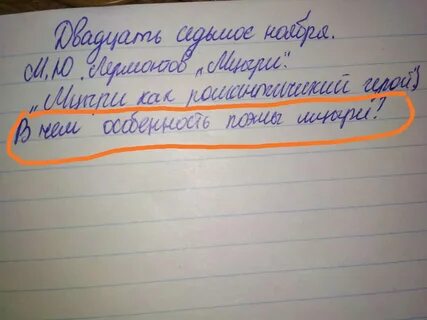 Двадцать седьмое ноября.
М.Ю. Лермонтов „Мцыри".
„Мцыри как романтический герой"
В чем особенность поэмы мцыри?